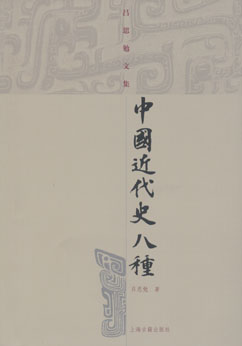 吕思勉文集
中國近代史八種
吕思勉 著
上海古籍出版社